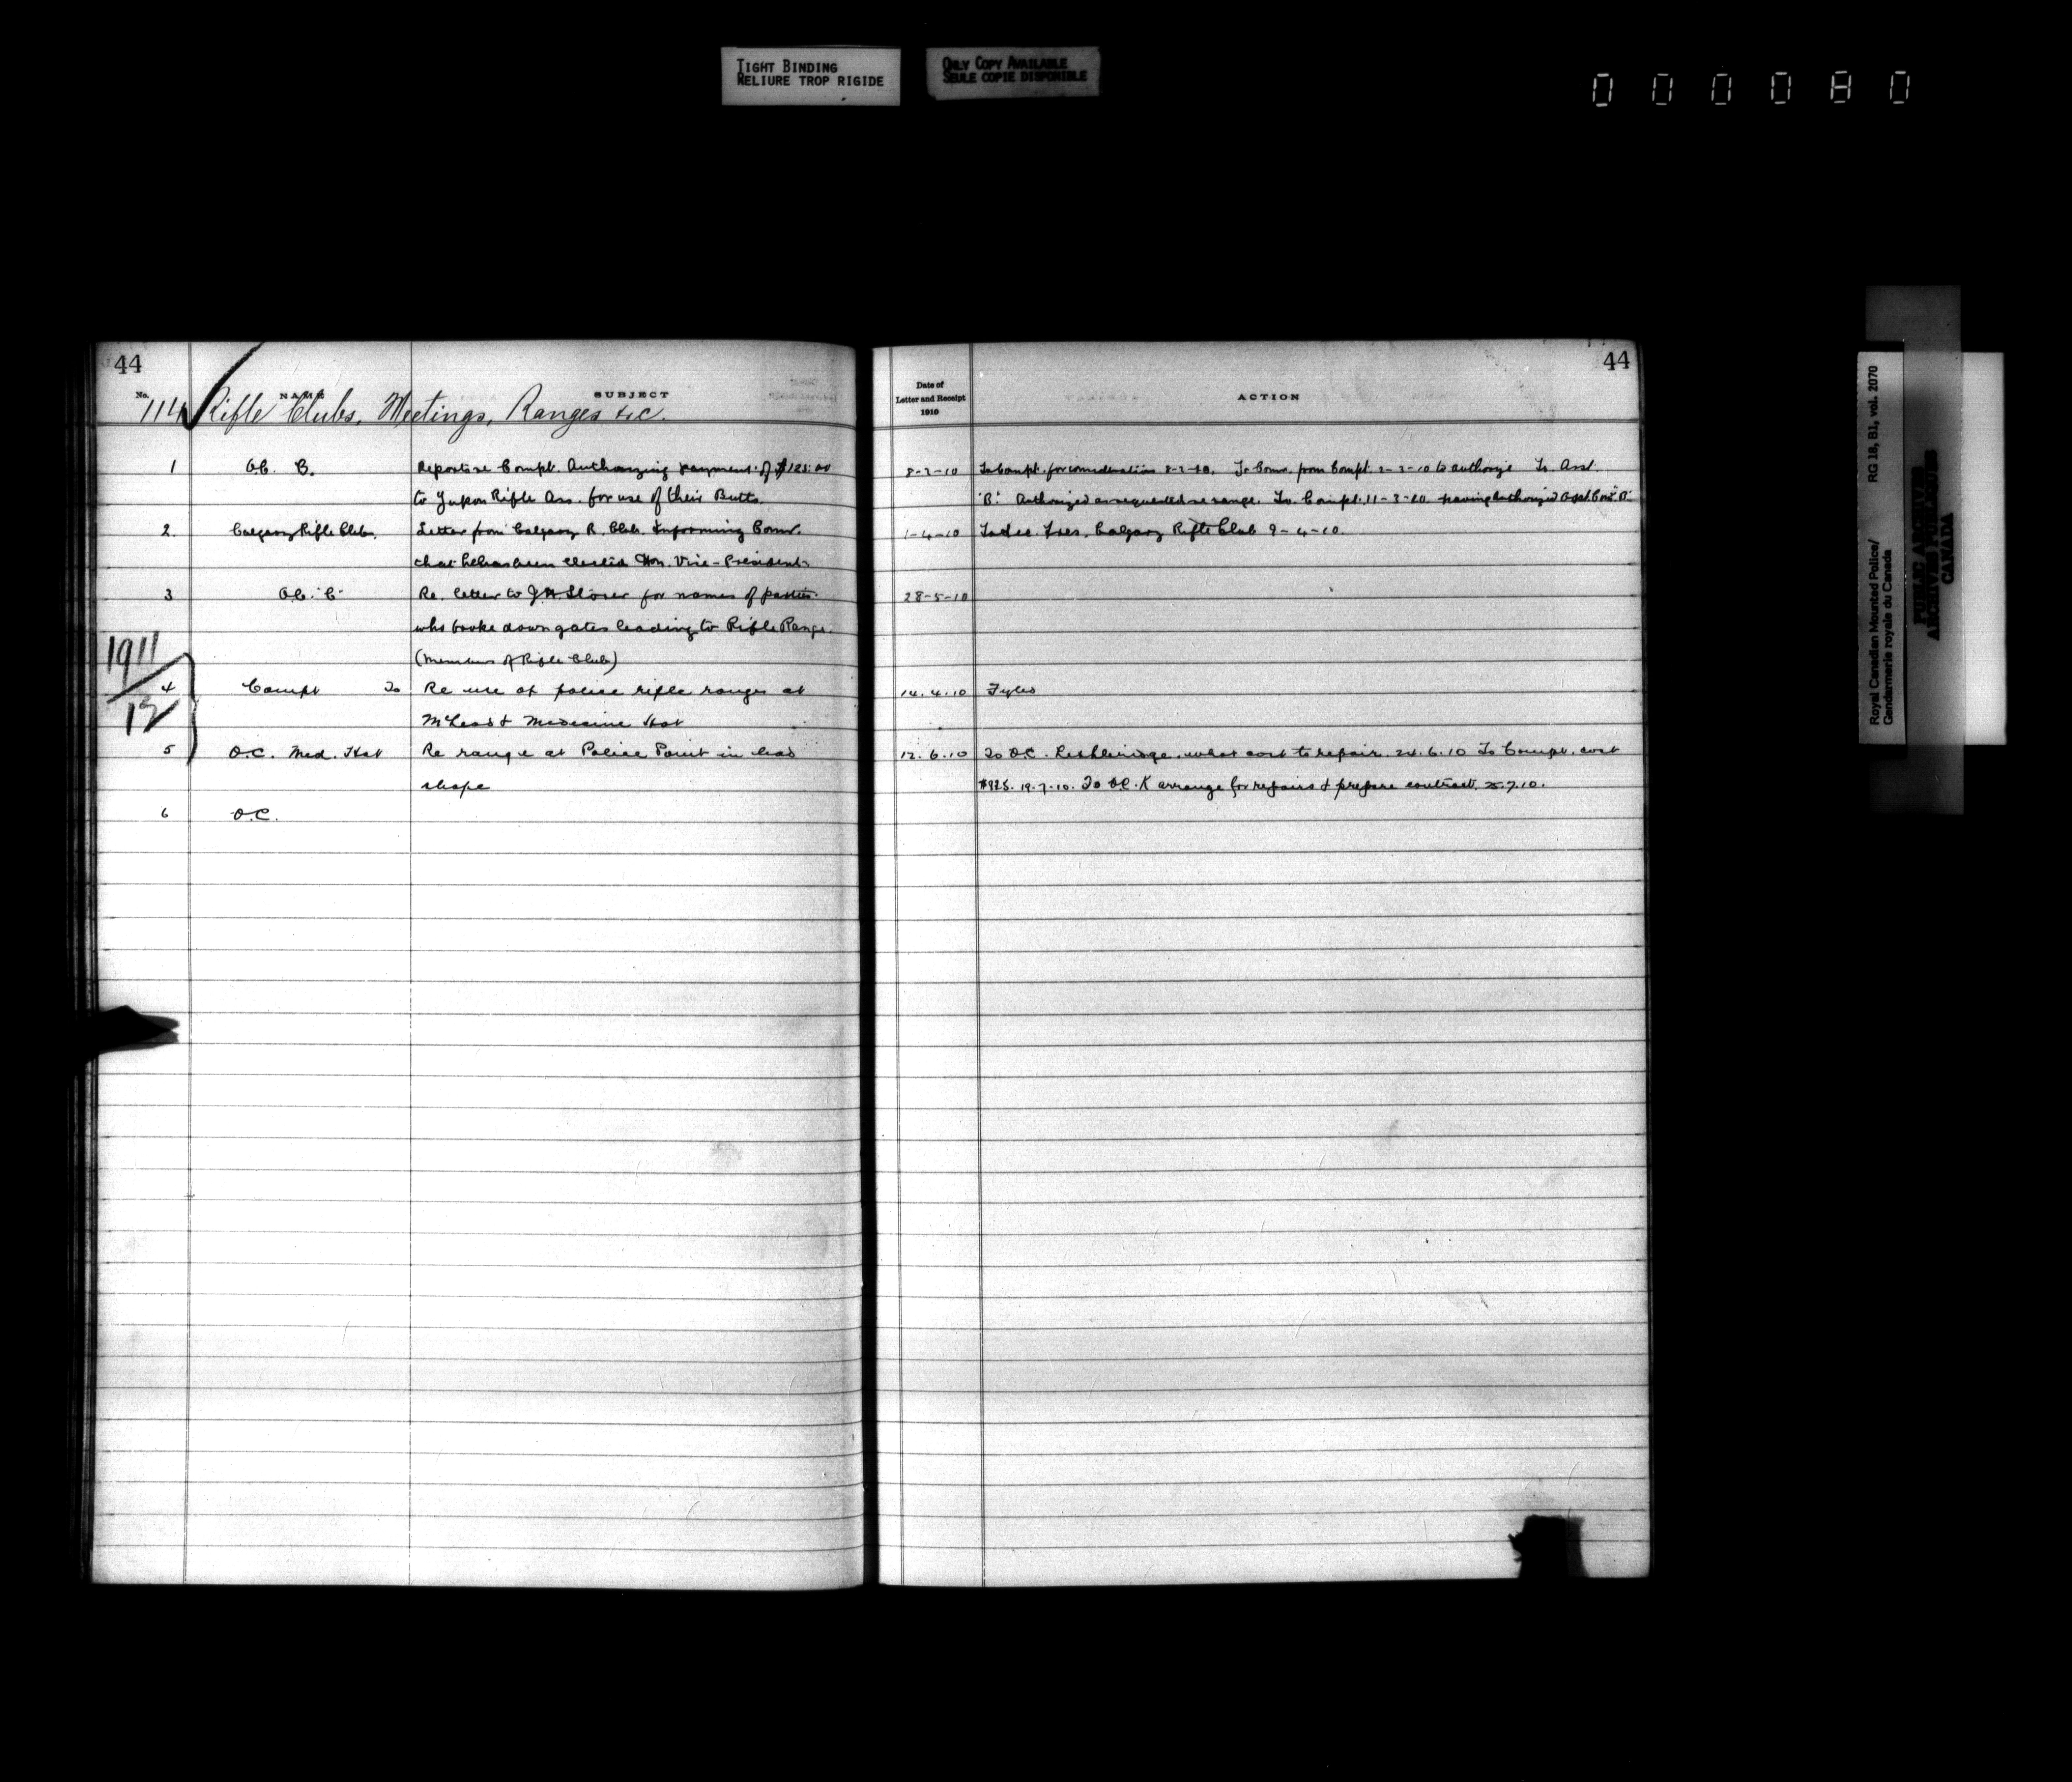 TIGHT BINDING
RELIURE TROP RIGIDE
ONLY COPY AVAILABLE
SEULE COPIE DISPONIBLE
000080
44
No. NAME SUBJECT
114 Rifle Clubs, Meetings, Ranges &c.
1 O.C. B. Compt. Authorizing payment of $125.00
to Yukon Rifle Ass. for use of their Butts.
2. Calgary Rifle Club. Letter from Calgary R. Club. Informing Comr.
that he has been elected Hon. Vice-President.
3 O.C. "C" Re. letter to for names of parties
who broke down gates leading to Rifle Range.
(Members of Rifle Club)
1911
12
4 Compt To Re use of police rifle ranges at
McLeod & Medicine Hat
5 O.C. Med. Hat Re range at Police Point in bad
shape
6 O.C.
44
Date of
Letter and Receipt
1910
ACTION
8-2-10 To Compt. for consideration 8-2-10. To Comr. from Compt. 2-3-10 to authorize To Asst.
"B". Authorized as requested re range. To Compt. 11-3-10 having authorized
1-4-10 Calgary Rifle Club 9-4-10.
28-5-10
14.4.10 Fyled
12.6.10 To O.C. Lethbridge. what cost to repair. 24.6.10 To Compt. cost
$925. 19.7.10. To O.C. K arrange for repairs & prepare contract. 25.7.10.
Royal Canadian Mounted Police/
Gendarmerie royale du Canada
RG 18, B1, vol. 2070
PUBLIC ARCHIVES
ARCHIVES PUBLIQUES
CANADA